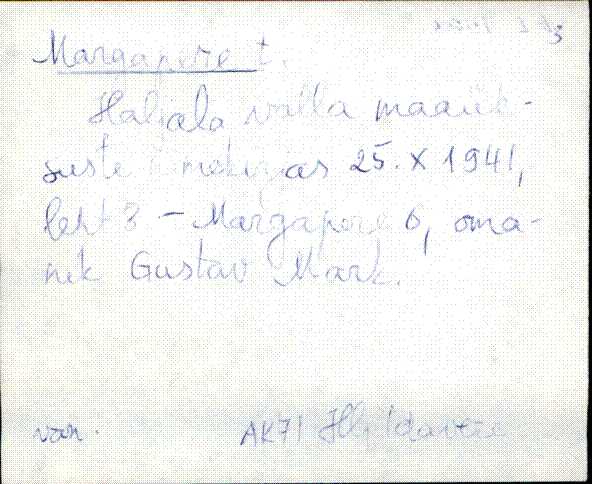 Margapere t.
Haljala valla maaük-
suste nimekirjas 25. X 1941,
leht 3 - Margapere 6, oma-
nik Gustav Mark.
van.
AK71